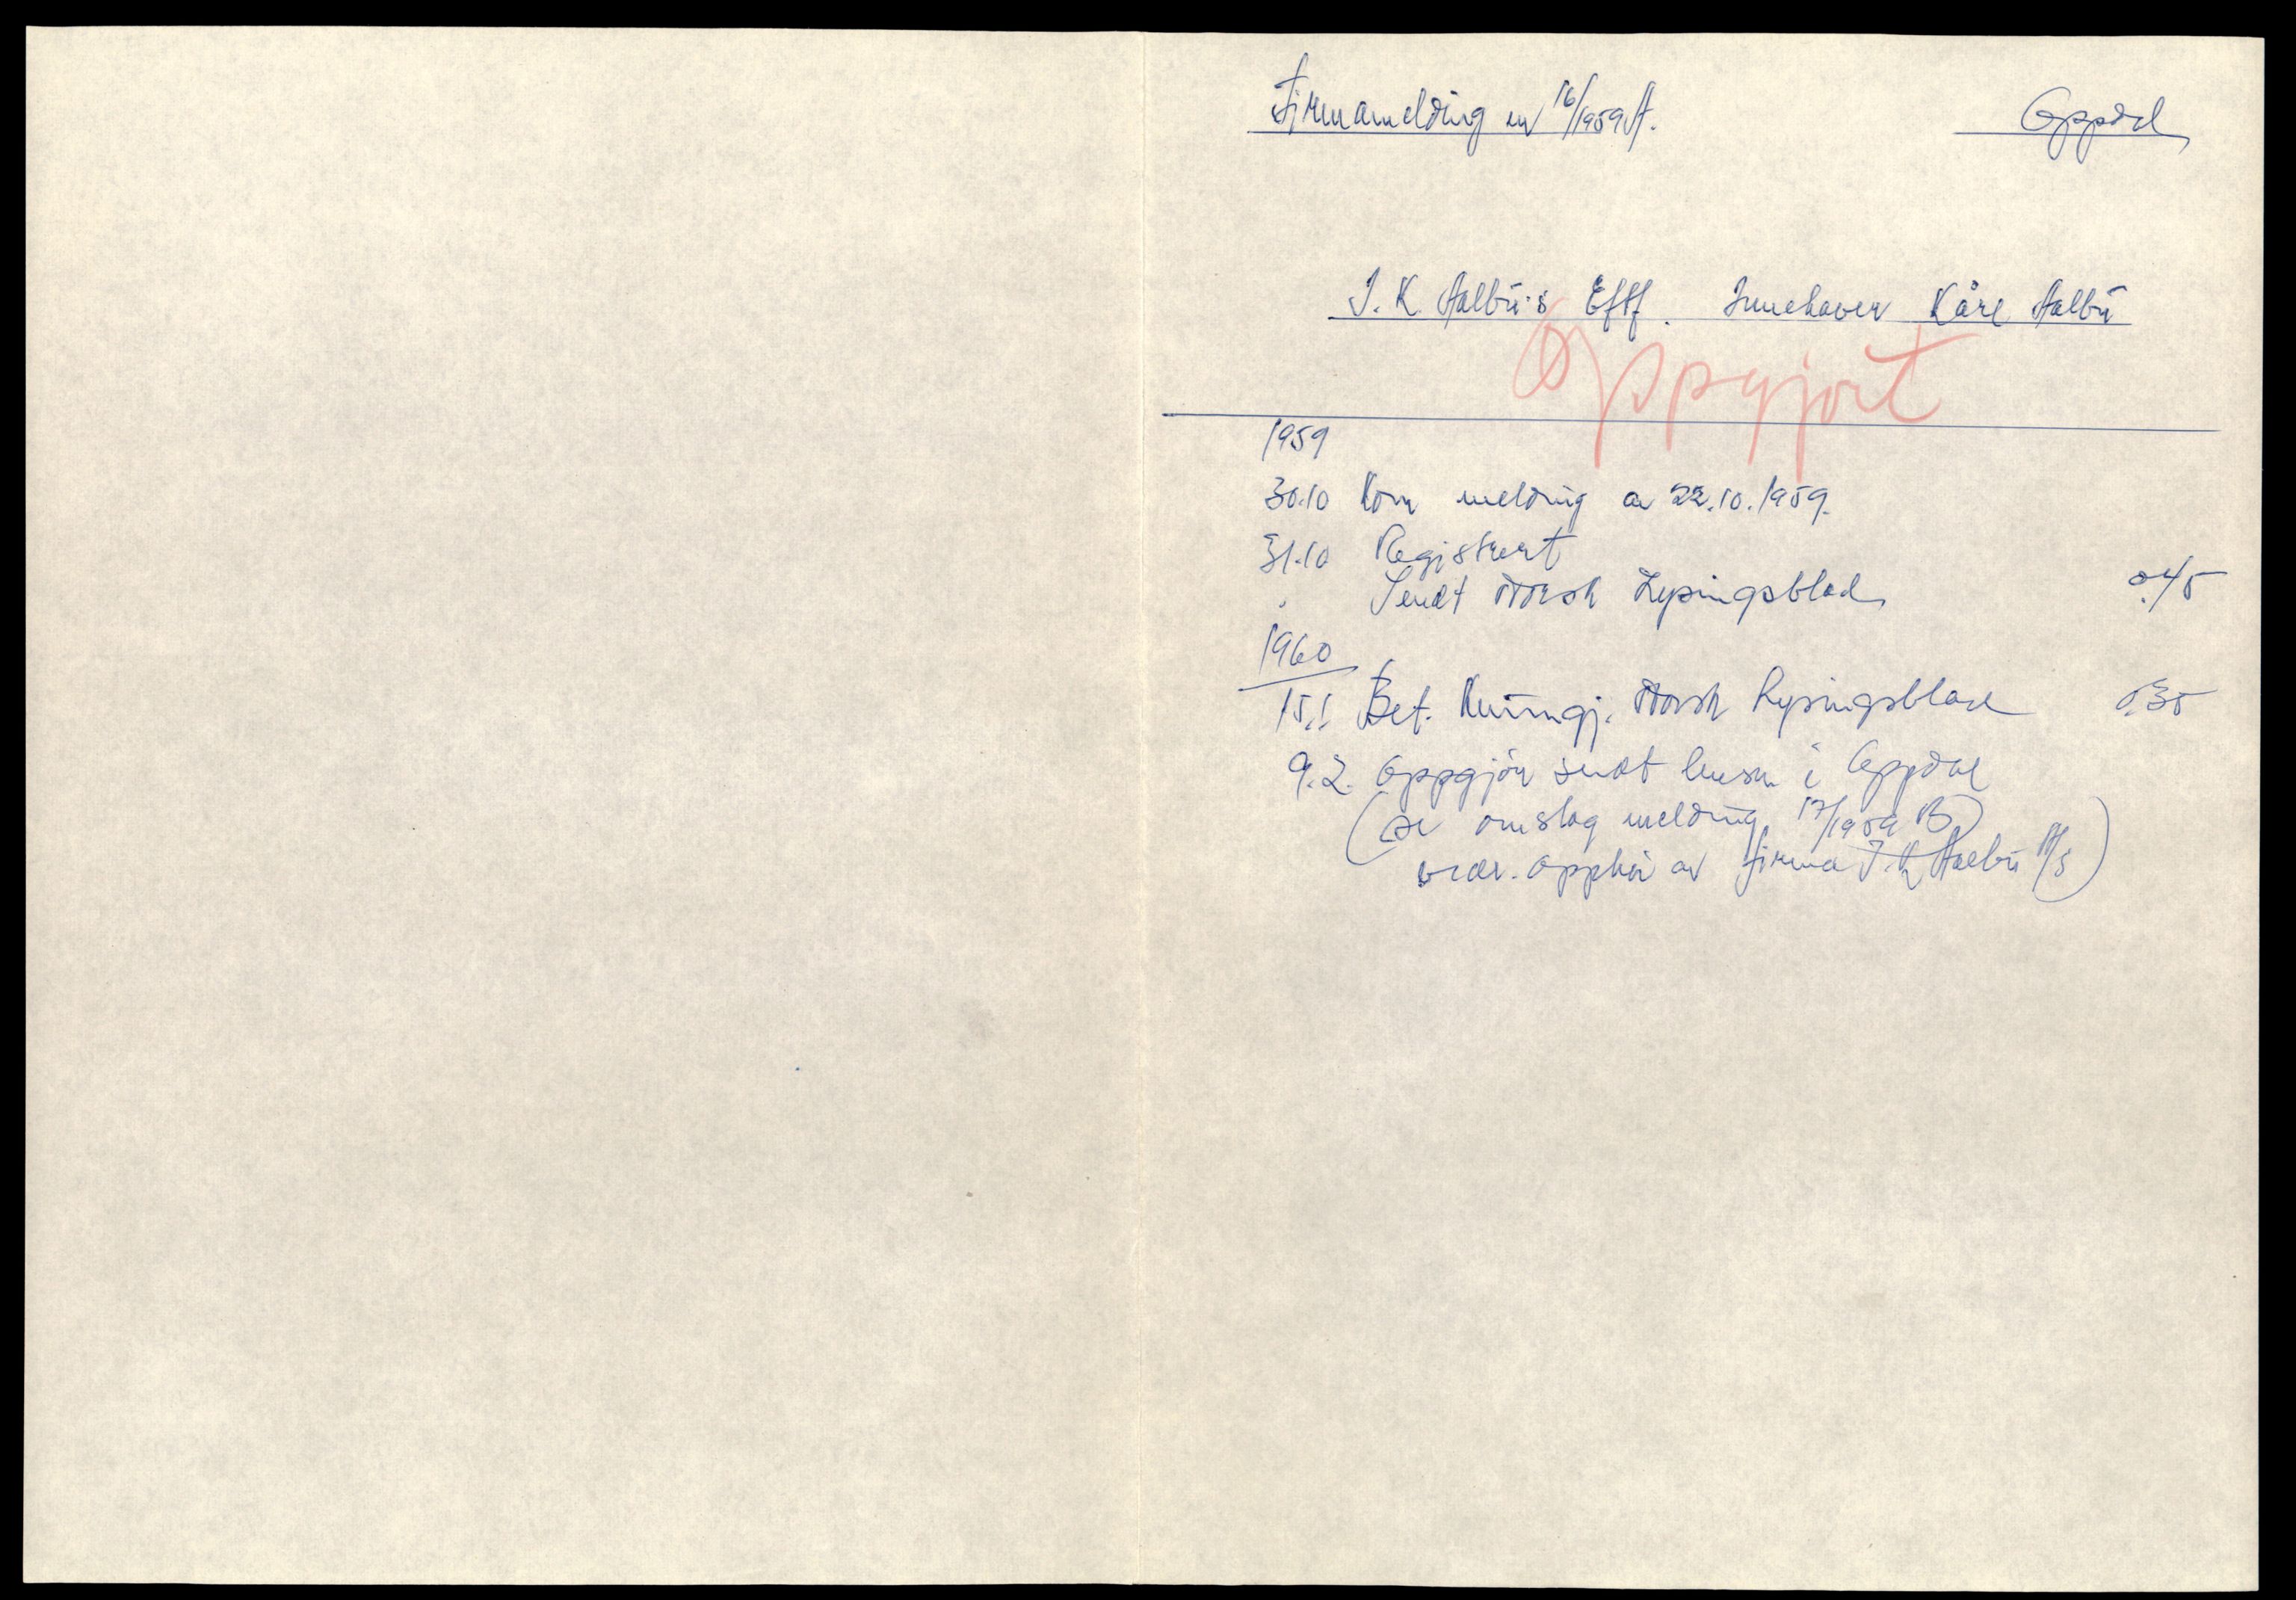 Firmamelding nr 16/1959 A.
Oppdal
J. K. Aalbu's Eftf. Innehaver Kåre Aalbu
Oppgjort
1959
30.10 Kom melding av 22.10.1959.
31.10 Registrert
" Sendt Norsk Lysingsblad 0.45
1960
15.1 Bet. kunngj. Norsk Lysingsblad 0.35
9.2. Oppgjör sendt lensm. i Oppdal
(se omslag melding 17/1959 B)
vedr. opphör av firma J. K. Aalbu A/S)